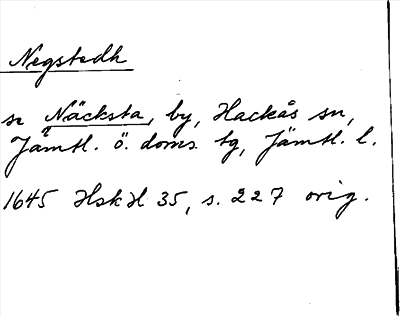 Negstedh
se Näcksta, by, Hackås sn,
Jämtl. ö. doms. tg, Jämtl. l.
1645 HskH 35, s. 227 orig.